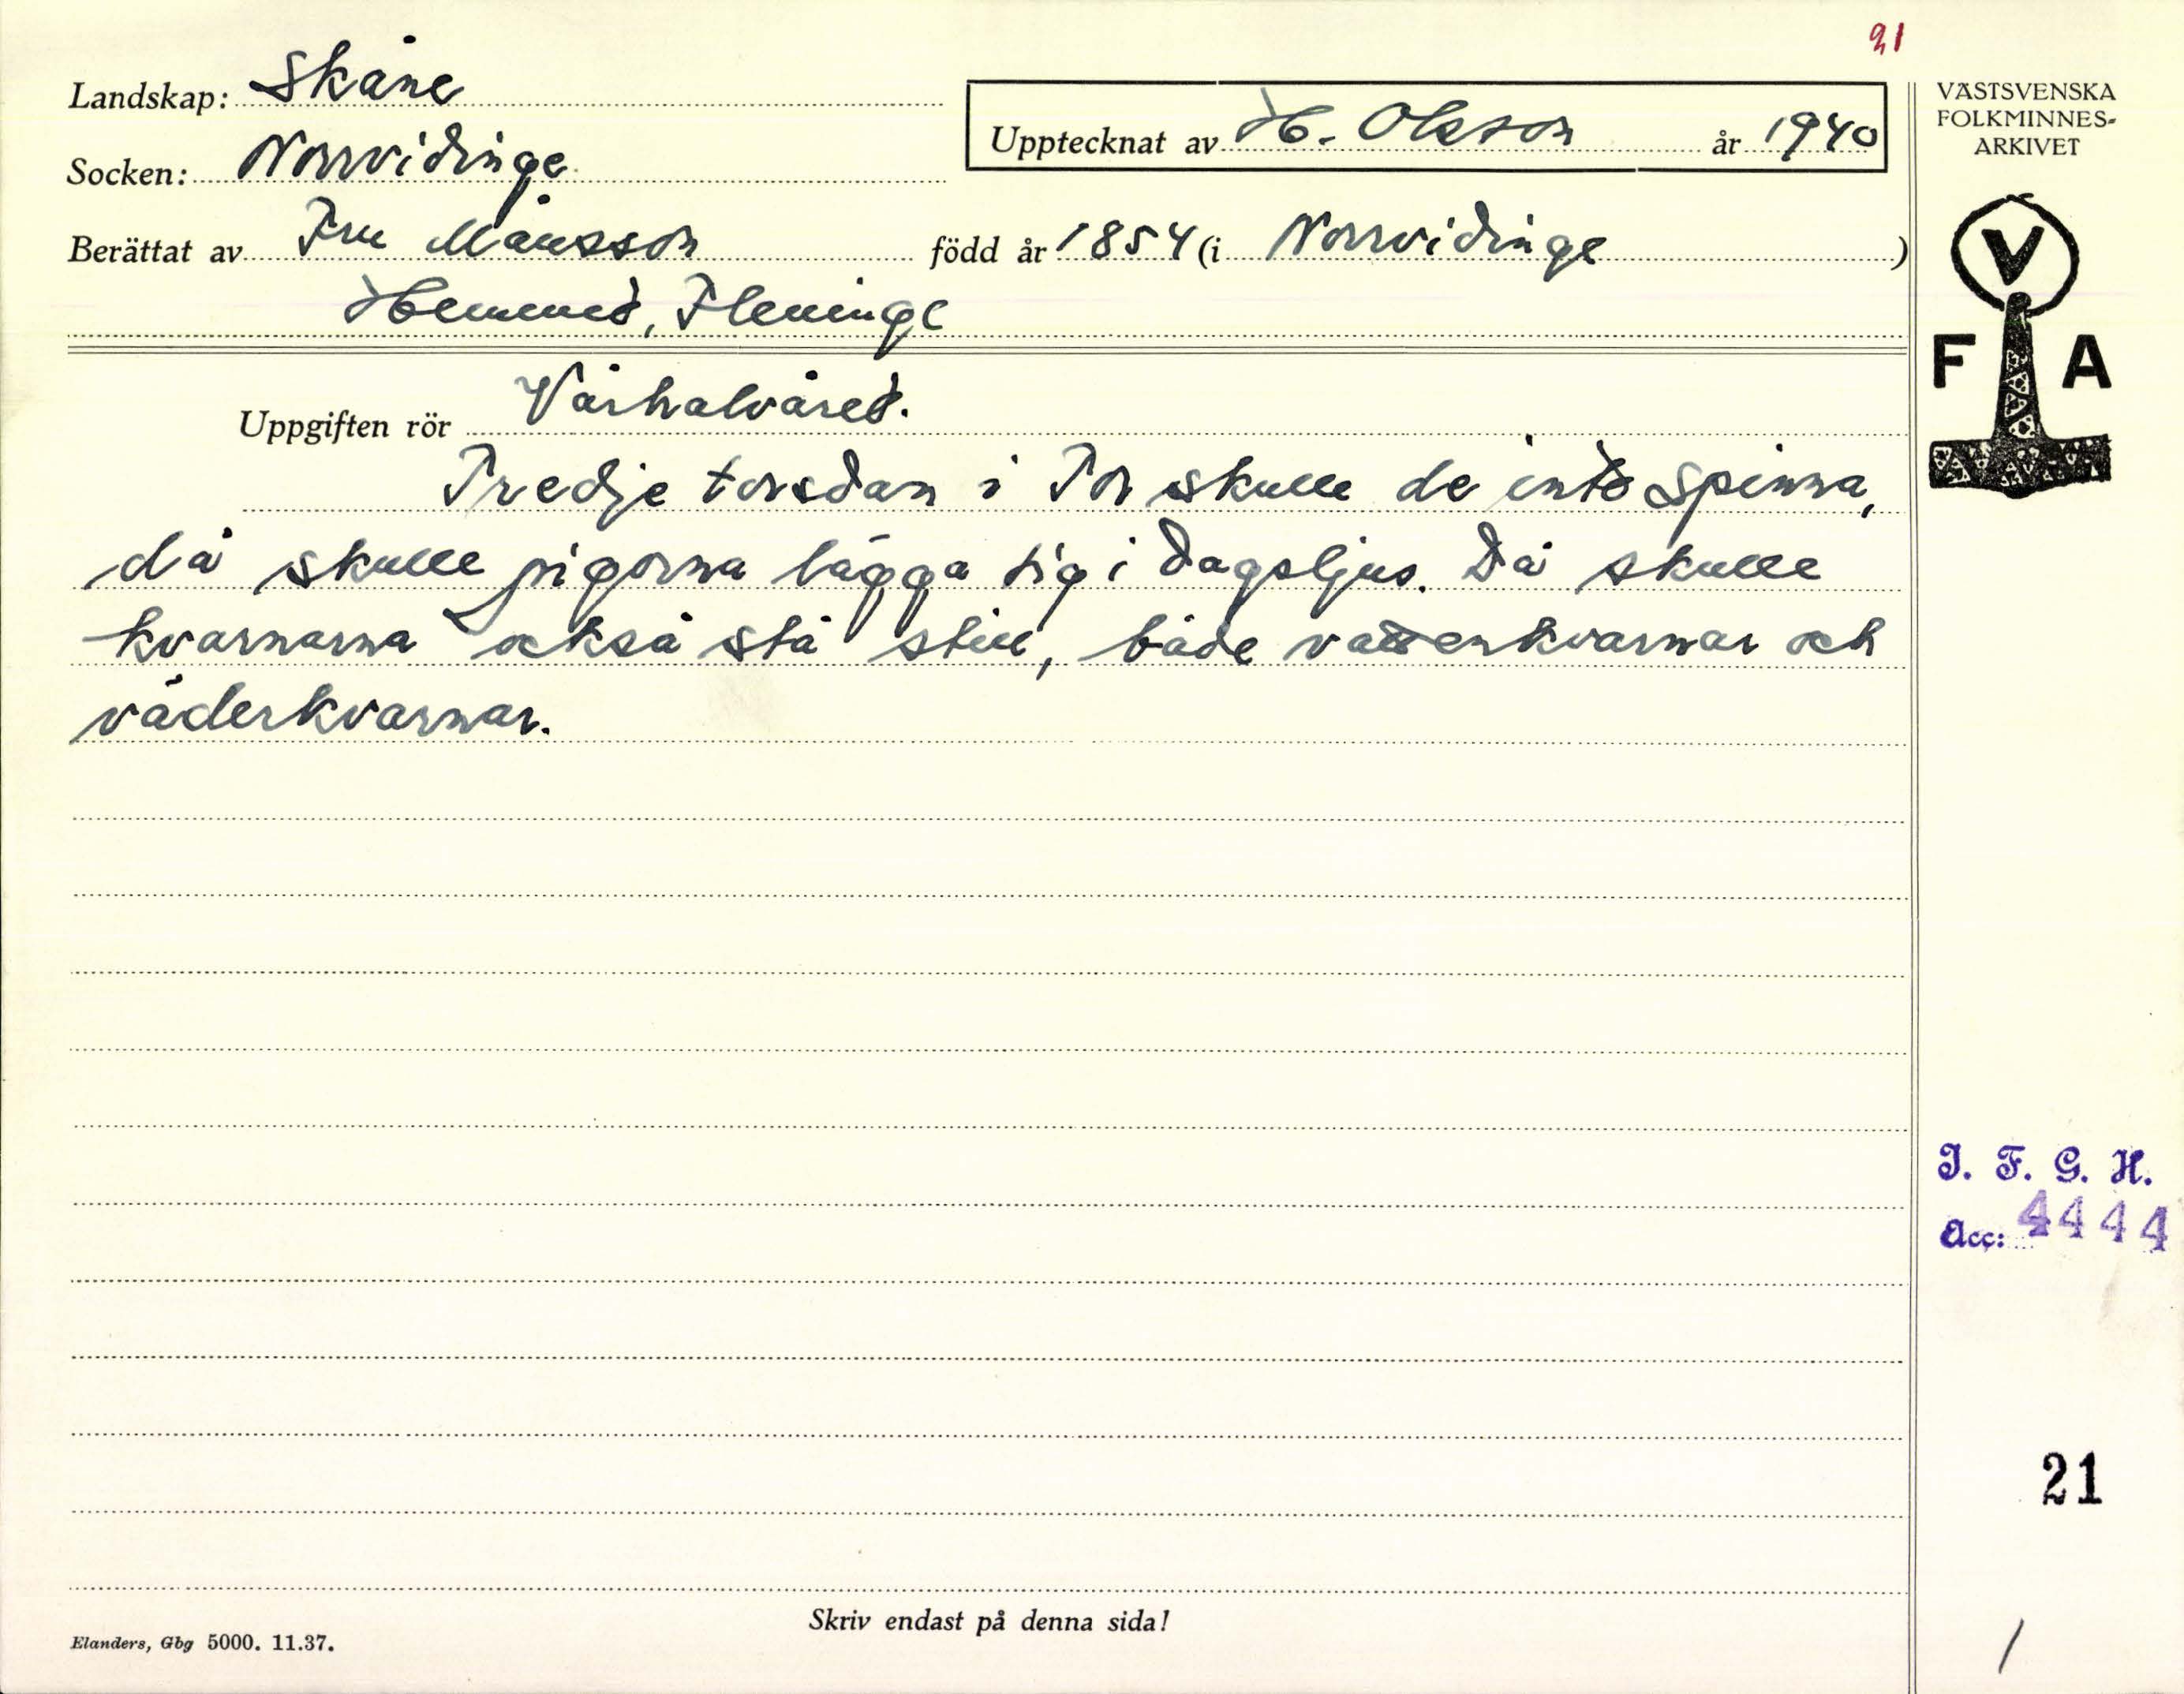 21
Landskap: Skåne
Upptecknat av H. Olsson år 1940
Socken: Norrvidinge
Berättat av Fru Månsson född år 1854 (i Norrvidinge)
Hemmet, Fleninge
Uppgiften rör Vårhalvåret.
Tredje torsdan i Tor skulle de inte spinna,
då skulle pigorna lägga sig i dagsljus. Då skulle
kvarnarna också stå still, både vattenkvarnar och
väderkvarnar.
Skriv endast på denna sida!
Elanders, Gbg 5000. 11.37.
VÄSTSVENSKA
FOLKMINNES-
ARKIVET
V
F A
I. F. G. H.
Acc: 4444
21
/